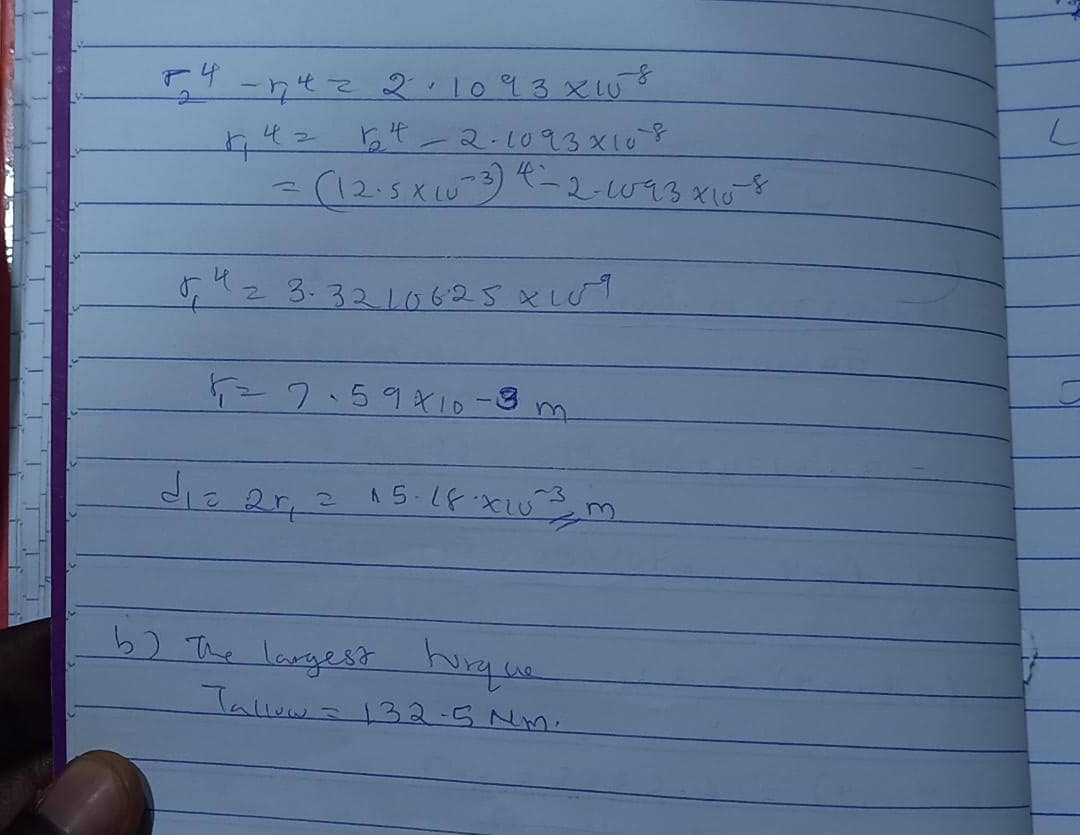 r₂⁴ - r₁⁴ = 2.1093 x10⁻⁸
r₁⁴ = r₂⁴ - 2.1093 x10⁻⁸
= (12.5 x10⁻³)⁴ - 2.1093 x10⁻⁸
r₁⁴ = 3.3210625 x10⁻⁹
r₁ = 7.59 x10⁻³ m
d₁ = 2r₁ = 15.18 x10⁻³ m
b) The largest torque
Tallow = 132.5 Nm.